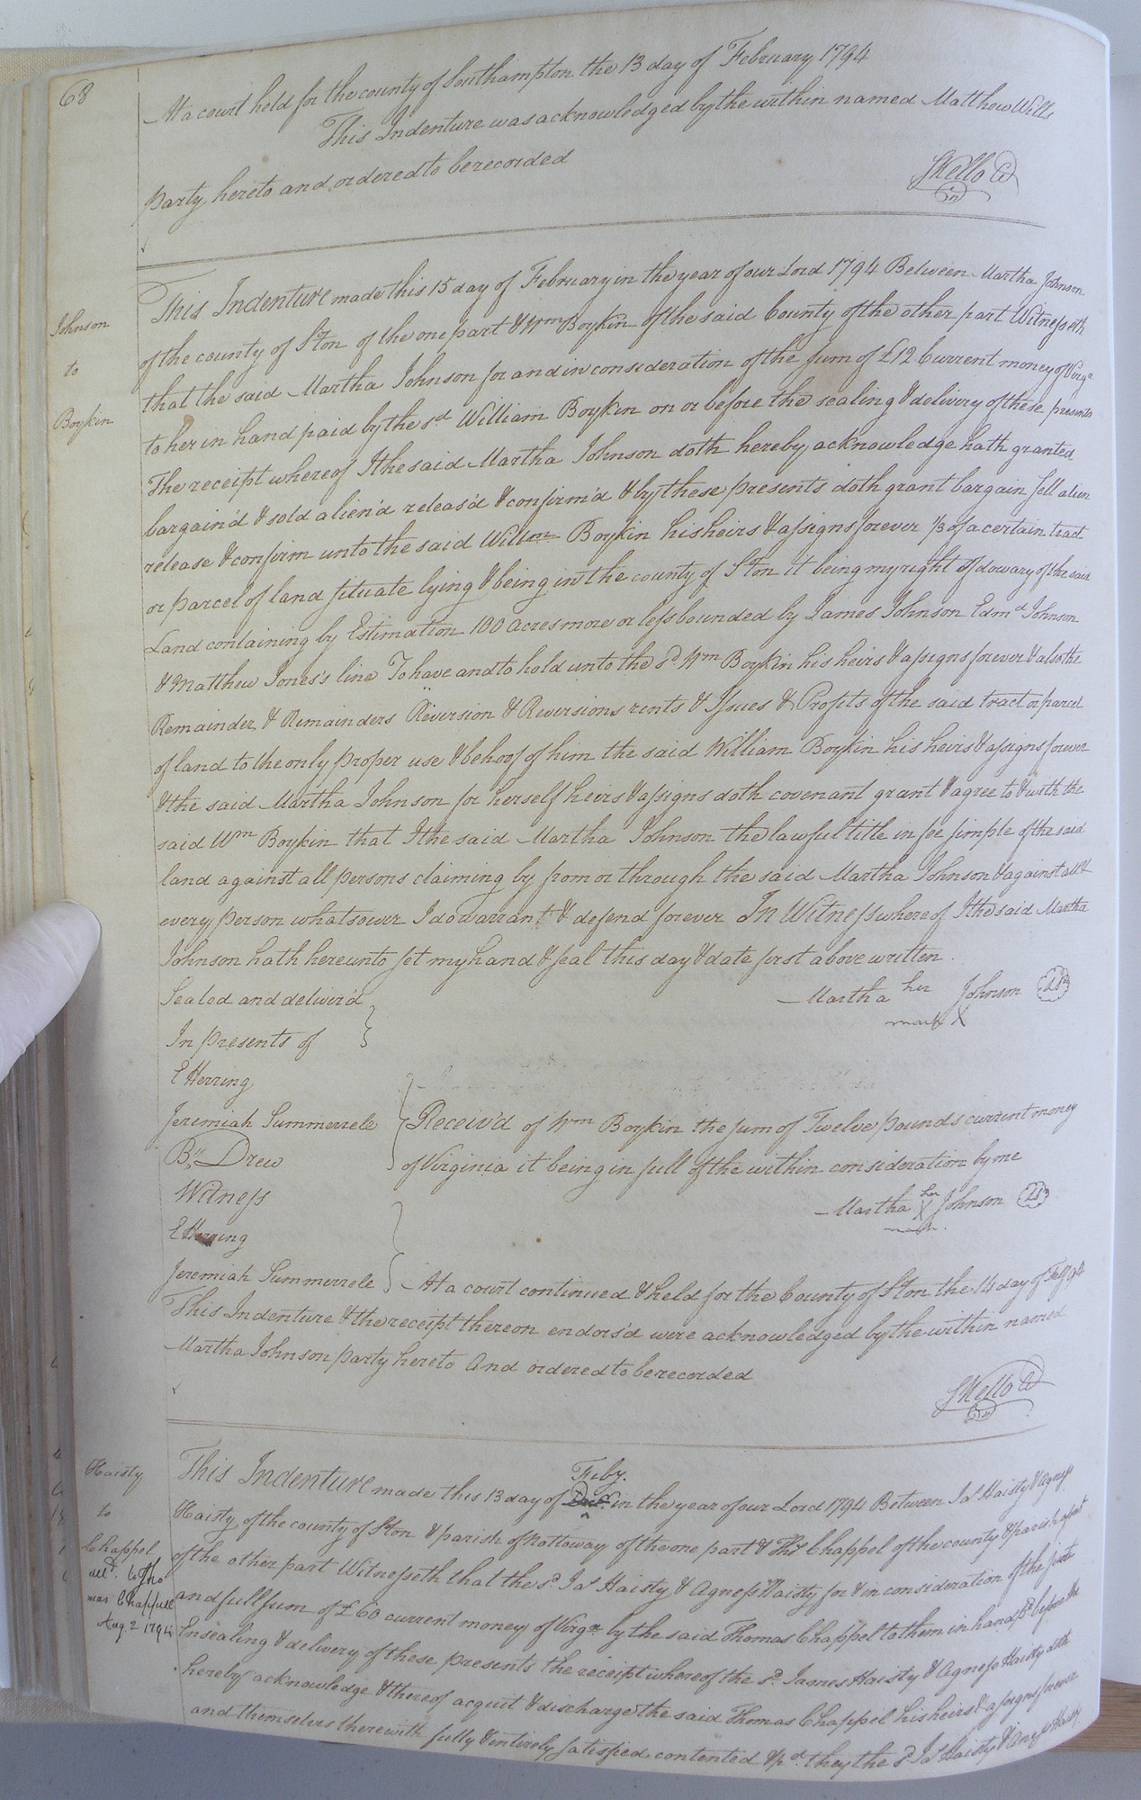 68
At a court held for the county of Southampton the 13 day of February 1794
This Indenture was acknowledged by the within named Matthew Wills
party hereto and ordered to be recorded
SKello Cl
Johnson
to
Boykin
This Indenture made this 15 day of February in the year of our Lord 1794 Between Martha Johnson
of the county of S°ton of the one part & Wm Boykin of the said County of the other part Witnesseth
that the said Martha Johnson for and in consideration of the sum of £12 Current money of Virga
to her in hand paid by the sd William Boykin on or before the sealing & delivery of these presents
The receipt whereof I the said Martha Johnson doth hereby acknowledge hath granted
bargain'd & sold alien'd releas'd & confirm'd & by these presents doth grant bargain sell alien
release & confirm unto the said Willm Boykin his heirs & assigns forever 1/3 of a certain tract
or parcel of land situate lying & being in the county of S°ton it being my right of dowary of the said
Land containing by Estimation 100 acres more or less bounded by James Johnson Edmd Johnson
& Matthew Jones's line To have and to hold unto the sd Wm Boykin his heirs & assigns forever & also the
Remainder & Remainders Reversion & Reversions rents & Issues & Profits of the said tract or parcel
of land to the only proper use & behoof of him the said William Boykin his heirs & assigns forever
& the said Martha Johnson for herself heirs & assigns doth covenant grant & agree to & with the
said Wm Boykin that I the said Martha Johnson the lawful title in fee simple of the said
land against all persons claiming by from or through the said Martha Johnson & against all &
every person whatsoever I do warrant & defend forever In Witness whereof I the said Martha
Johnson hath hereunto set my hand & seal this day & date first above written.
Sealed and deliver'd
In presents of
E Herring
Jeremiah Summerrele
Bn Drew
Martha her Johnson LS
mark X
Receiv'd of Wm Boykin the sum of Twelve pounds current money
of Virginia it being in full of the within consideration by me
Witness
E Herring
Jeremiah Summerrele
Martha her X Johnson LS
mark.
At a court continued & held for the County of S°ton the 14 day of Feby 94
This Indenture & the receipt thereon endors'd were acknowledged by the within named
Martha Johnson party hereto And ordered to be recorded
SKello Cl
Haisty
to
Chappel
deld. to Tho
mas Chappell
Aug. 2 1794
Feby.
This Indenture made this 13 day of Decr. in the year of our Lord 1794 Between Jas Haisty & Agness
Haisty of the county of S°ton & parish of Nottoway of the one part & Thos Chappel of the county & parish afst
of the other part Witnesseth that the sd Jas Haisty & Agness Haisty for & in consideration of the just
and full sum of £60 current money of Virga by the said Thomas Chappel to them in hand pd before the
Insealing & delivery of these presents the receipt whereof the sd James Haisty & Agness Haisty doth
hereby acknowledge & thereof acquit & discharge the said Thomas Chappel his heirs & assigns forever
and themselves therewith fully & entirely satisfied contented & pd they the sd Jas Haisty & Agness Haisty